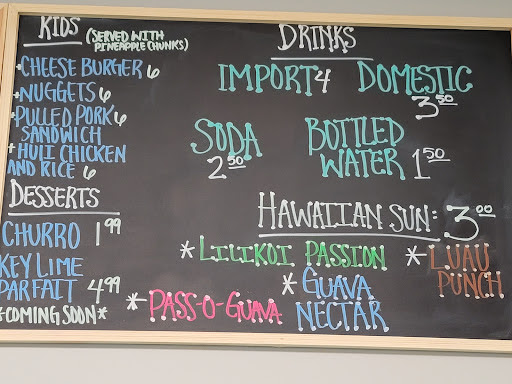 KIDS (SERVED WITH
PINEAPPLE CHUNKS)
• CHEESE BURGER 6
• NUGGETS 6
• PULLED PORK 6
SANDWICH
• HULI CHICKEN
AND RICE 6
DESSERTS
CHURRO 1.99
KEY LIME
PARFAIT 4.99
*COMING SOON*
DRINKS
IMPORT 4 DOMESTIC
3.50
SODA
2.50
BOTTLED
WATER 1.50
HAWAIIAN SUN: 3.00
* LILIKOI PASSION
* LUAU
PUNCH
* GUAVA
NECTAR
* PASS-O-GUAVA